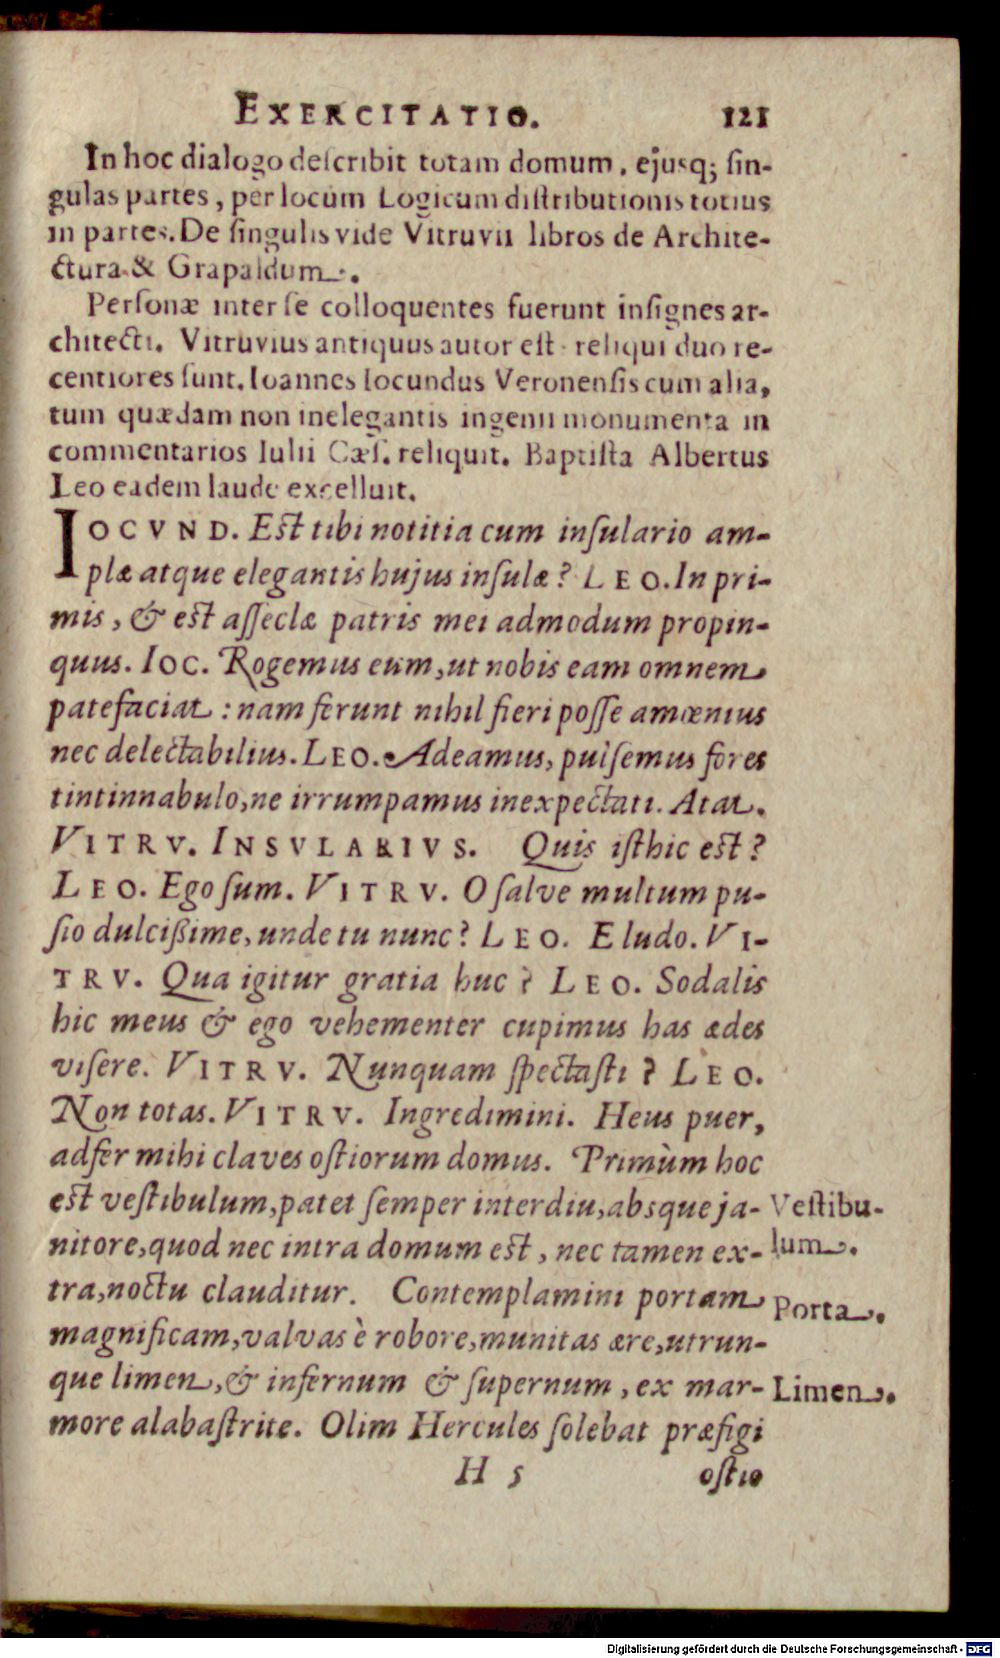 EXERCITATIO. 121
In hoc dialogo describit totam domum, ejusq; sin-
gulas partes, per locum Logicum distributionis totius
in partes. De singulis vide Vitruvii libros de Archite-
ctura & Grapaldum.
Personæ inter se colloquentes fuerunt insignes ar-
chitecti. Vitruvius antiquus autor est reliqui duo re-
centiores sunt. Ioannes Iocundus Veronensis cum alia,
tum quædam non inelegantis ingenii monumenta in
commentarios Iulii Cæs. reliquit. Baptista Albertus
Leo eadem laude excelluit.
IOCVND. Est tibi notitia cum insulario am-
plæ atque elegantis hujus insulæ? LEO. In pri-
mis, & est asseclæ patris mei admodum propin-
quus. IOC. Rogemus eum, ut nobis eam omnem
patefaciat: nam ferunt nihil fieri posse amœnius
nec delectabilius. LEO. Adeamus, pulsemus fores
tintinnabulo, ne irrumpamus inexpectati. Atat.
VITRV. INSVLARIVS. Quis isthic est?
LEO. Ego sum. VITRV. O salve multum pu-
sio dulcißime, unde tu nunc? LEO. E ludo. VI-
TRV. Qua igitur gratia huc? LEO. Sodalis
hic meus & ego vehementer cupimus has ædes
visere. VITRV. Nunquam spectasti? LEO.
Non totas. VITRV. Ingredimini. Heus puer,
adfer mihi claves ostiorum domus. Primùm hoc
est vestibulum, patet semper interdiu, absque ja- Vestibu-
nitore, quod nec intra domum est, nec tamen ex- lum.
tra, noctu clauditur. Contemplamini portam Porta.
magnificam, valvas è robore, munitas ære, utrun-
que limen, & infernum & supernum, ex mar- Limen.
more alabastrite. Olim Hercules solebat præfigi
H 5 ostio
Digitalisierung gefördert durch die Deutsche Forschungsgemeinschaft - DFG